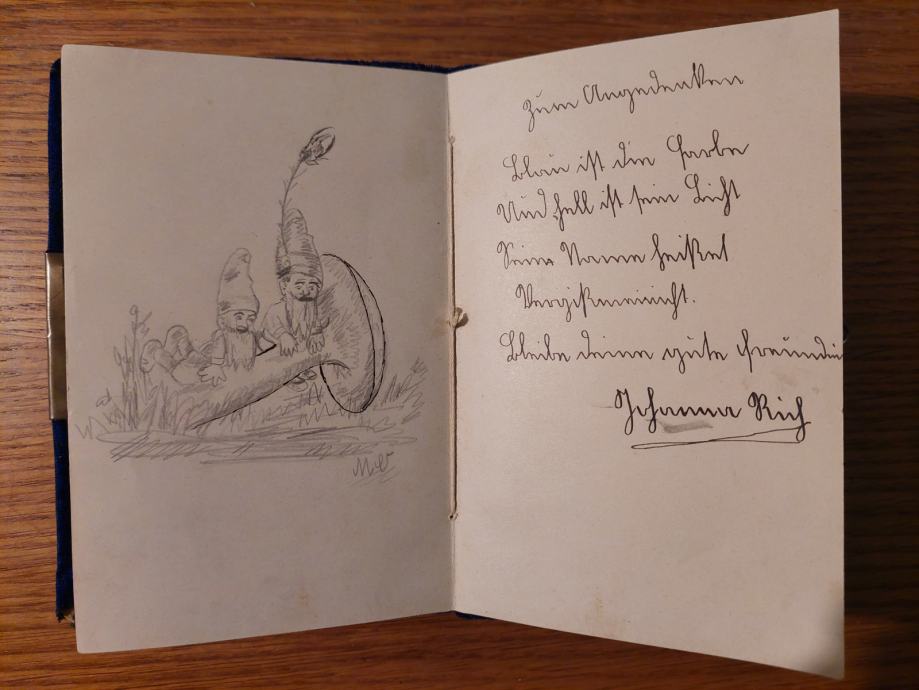 M.V
Zum Angedenken
Blau ist die Farbe
Und hell ist sein Licht
Seine Name heißet
Vergißmeinicht.
Bleibe deine gute Freundin
Johanna Rich